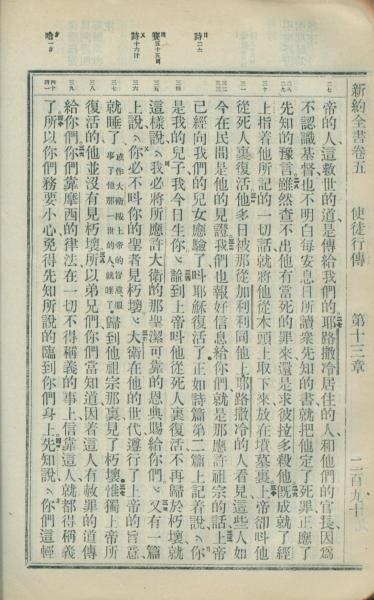 新約全書卷五 使徒行傳 第十三章 二百九十
二七
帝的人、這救世的道是傳給我們的、耶路撒冷居住的人、和他們的官長、因為
不認識基督、也不明白每安息日所讀衆先知的書、就把他定了死罪、正應了
二八 二九
先知的豫言、雖然查不出他有當死的罪來、還是求彼拉多殺他、既成就了經
三十
上指着他所記的一切話、就將他從木頭上取下來、放在墳墓裏、上帝卻叫他
三一
從死人裏復活、他多日被那從加利利同他上耶路撒冷的人看見、這些人如
三二 三三
今在民間是他的見證、我們也報好信息給你們、就是那應許祖宗的話、上帝
詩二 七
已經向我們的兒女應驗了、叫耶穌復活了、正如詩篇第二篇上記着說、你
三四
是我的兒子、我今日生你、論到上帝叫他從死人裏復活、不再歸於朽壞、就
賽五十五 三
三五
這樣說、我必將所應許大衛的那聖潔可靠的恩典賜給你們、又有一篇
詩十六 十
三六
上說、你必不叫你的聖者見朽壞、大衛在他的世代遵行了上帝的旨意、
就睡了、或作大衛按上帝的旨意服事了他那一世的人就睡了歸到他祖宗那裏、見了朽壞、惟獨上帝所
三七 三八
復活的、他並沒有見朽壞、所以弟兄們、你們當知道、因着這人有赦罪的道傳
三九
給你們、你們靠摩西的律法、在一切不得稱義的事上、信靠這人、就都得稱義
哈一 五
四十 四一
了、所以你們務要小心、免得先知所說的臨到你們身上、先知說、你們這輕